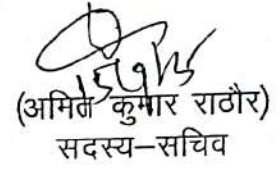 (अमित कुमार राठौर)
सदस्य–सचिव